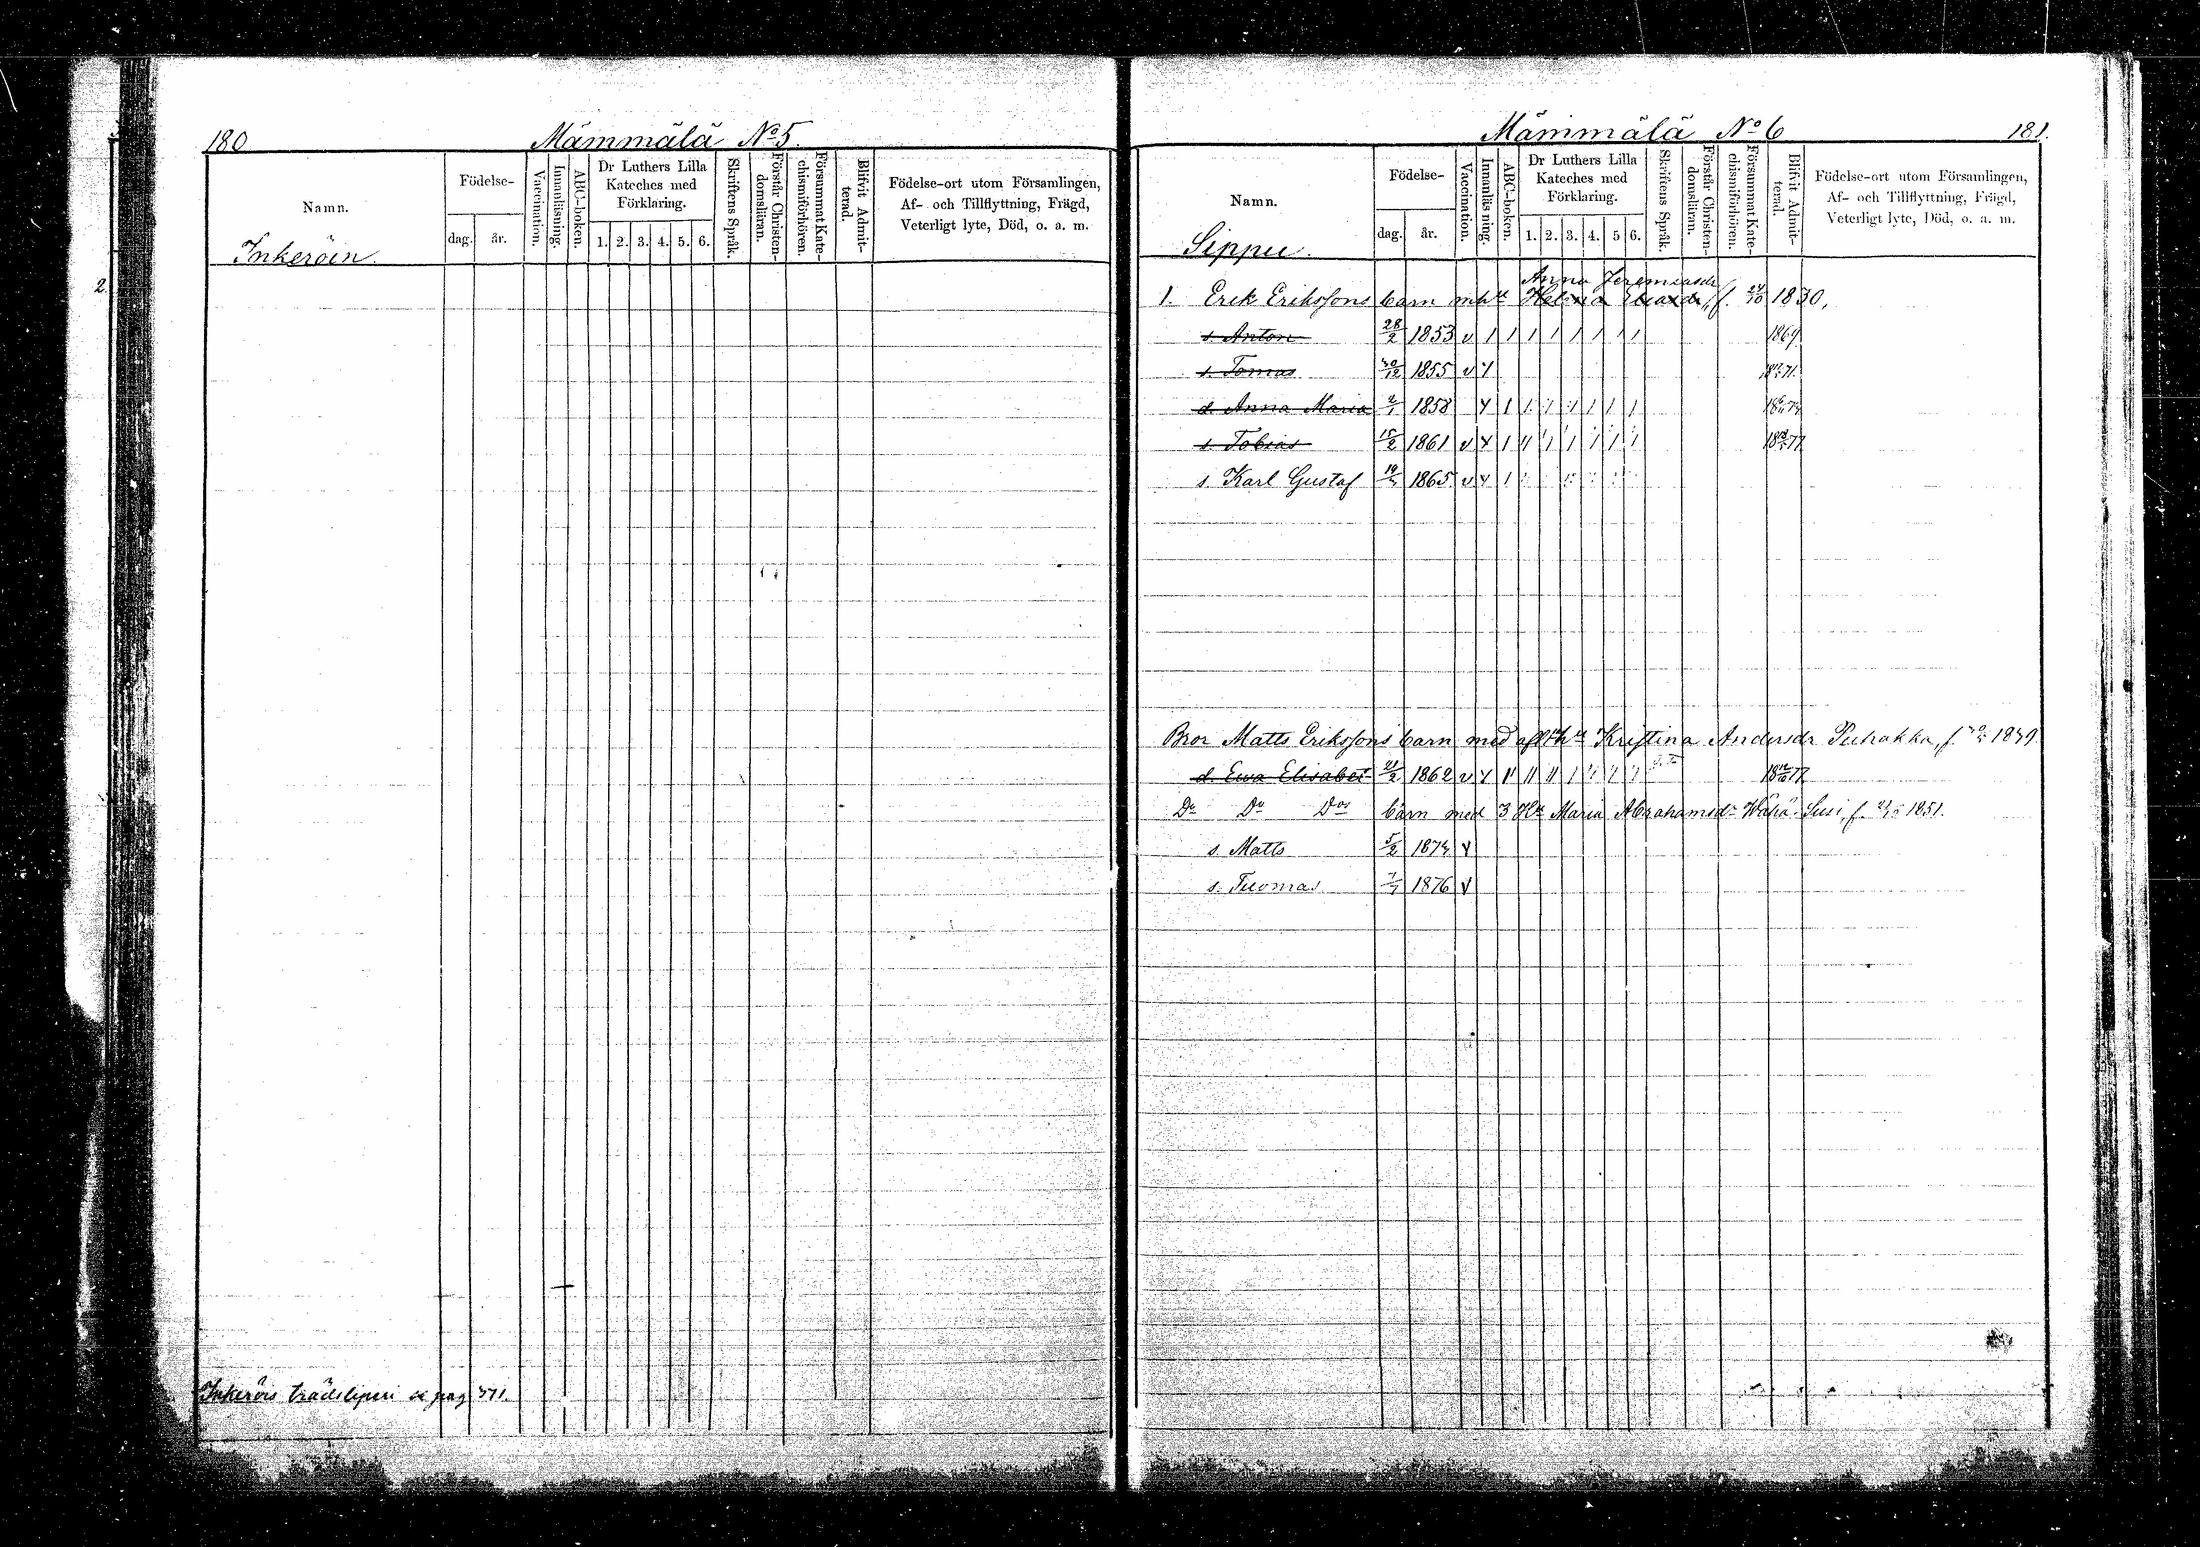 180 Mämmälä No 5.
Namn. Födelse- dag. år. Vaccination. Innanläsning. ABC-boken. Dr Luthers Lilla Kateches med Förklaring. 1. 2. 3. 4. 5. 6. Skriftens Språk. Förstår Christendomsläran. Försummat Katechismiförhören. Blifvit Admitterad. Födelse-ort utom Församlingen, Af- och Tillflyttning, Frägd, Veterligt lyte, Död, o. a. m.
Inkeröin.
Inkeröis pag 371.
Mämmälä No 6 181.
Namn. Födelse- dag. år. Vaccination. Innanläsning. ABC-boken. Dr Luthers Lilla Kateches med Förklaring. 1. 2. 3. 4. 5 6. Skriftens Språk. Förstår Christendomsläran. Försummat Katechismiförhören. Blifvit Admitterad. Födelse-ort utom Församlingen, Af- och Tillflyttning, Frägd, Veterligt lyte, Död, o. a. m.
Sippu.
Anna Jeremiasdr
1. Erik Erikssons barn m h u f. 24/10 1830,
s. Anton 28/2 1853 v 1 1 1 1 1 1 1 1 1869
s. Tomas 30/12 1855 v
d. Anna Maria 2/1 1858
s. Tobias 15/2 1861 v
s. Karl Gustaf 1865 v
Bror Matts Erikssons barn med afl h u Kristina Andersdr Puhakka, f. 1839
d. Ewa Elisabet 21/2 1862 v
Do Do Dos barn med 3 Hu Maria Abrahamsdr Wähä-Susi, f. 1851.
s. Matts 5/2 1874 v
s. Tuomas 1876 v